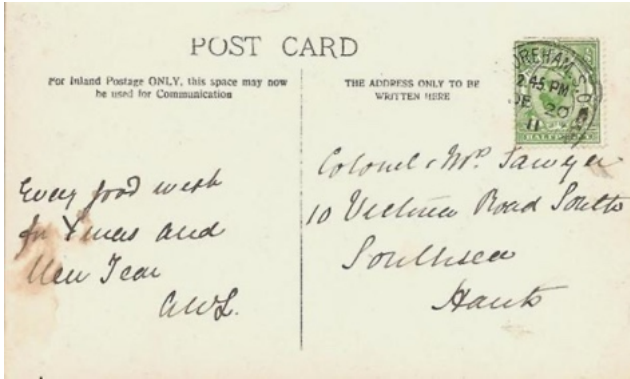 POST CARD
For Inland Postage ONLY, this space may now
be used for Communication
THE ADDRESS ONLY TO BE
WRITTEN HERE
UREHAM S.O
2.45 PM
DE 20
11
HALFPENNY
Every good wish
for Xmas and
New Year
AWL.
Colonel & Mrs. Sawyer
10 Victoria Road South
Southsea
Hants